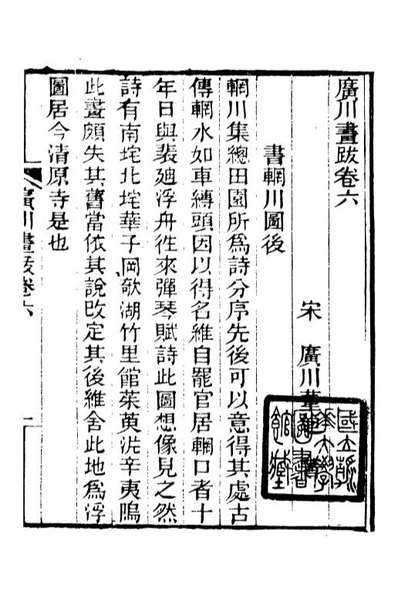 廣川畫跋卷六
宋 廣川董
書輞川圖後
輞川集總田園所爲詩分序先後可以意得其處古
傳輞水如車縛頭因以得名維自罷官居輞口者十
年日與裴廸浮舟徃來彈琴賦詩此圖想像見之然
詩有南垞北垞華子岡欹湖竹里館茱萸沜辛夷塢
此畫頗失其舊當依其說改定其後維舍此地爲浮
圖居今清原寺是也
廣川畫跋卷六
一
國立
大學
圖書
館藏